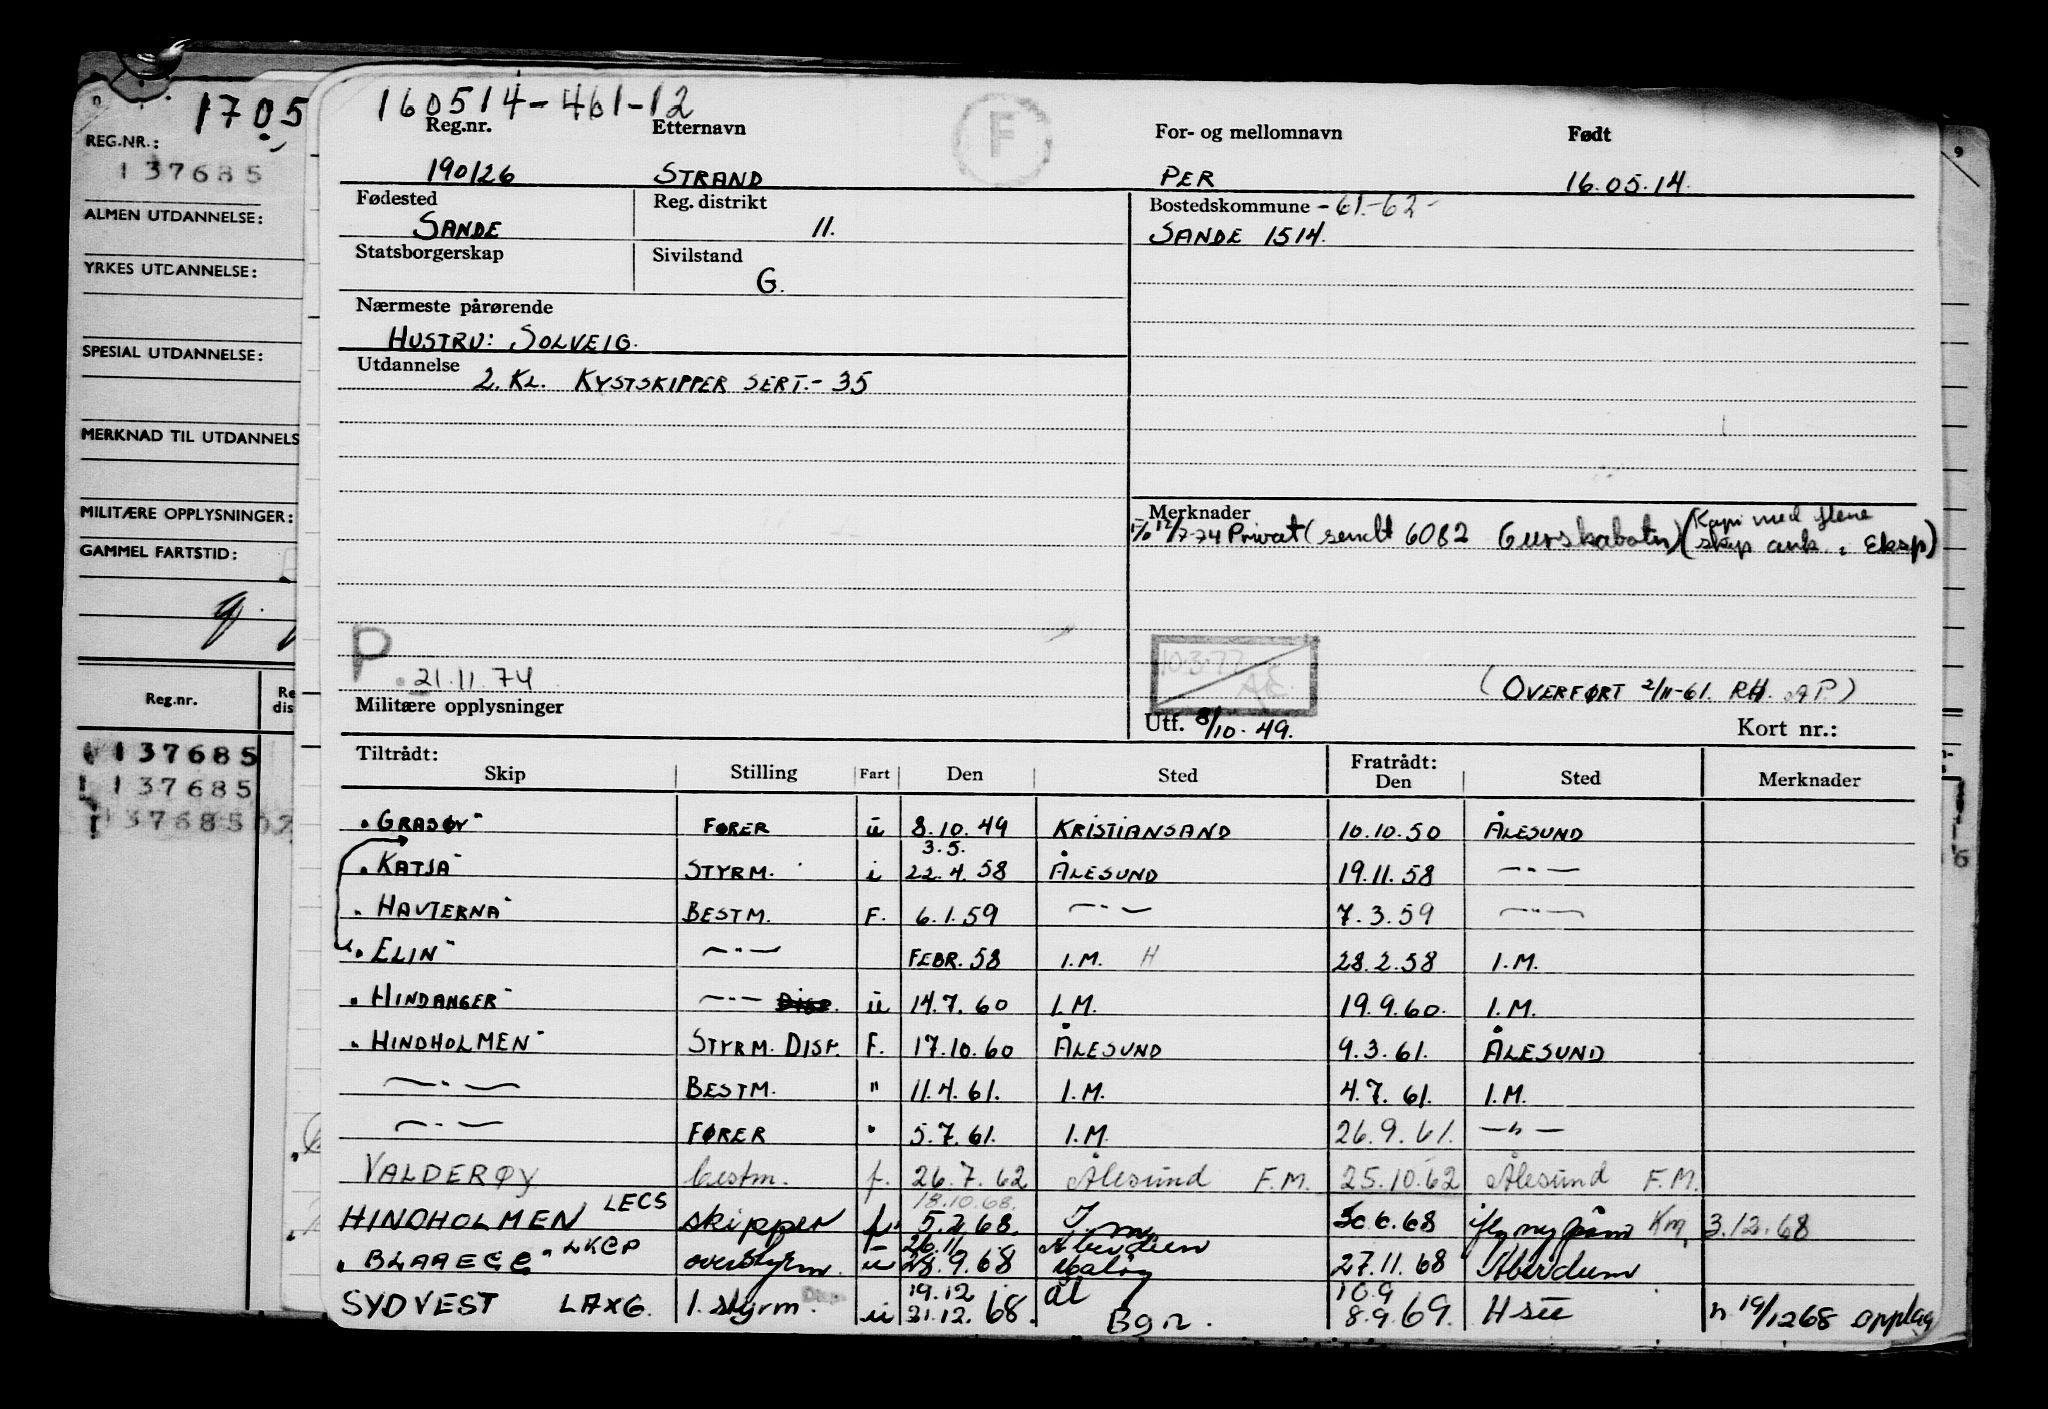 1705
REG.NR.:
137685
ALMEN UTDANNELSE:
YRKES UTDANNELSE:
SPESIAL UTDANNELSE:
MERKNAD TIL UTDANNELS
MILITÆRE OPPLYSNINGER:
GAMMEL FARTSTID:
Reg.nr. Re
dis
137685
137685
137685
160514-461-12
F
Reg.nr. Etternavn For- og mellomnavn Født
190126 STRAND PER 16.05.14.
Fødested Reg. distrikt Bostedskommune - 61-62-
SANDE 11. SANDE 1514.
Statsborgerskap Sivilstand
G.
Nærmeste pårørende
HUSTRU: SOLVEIG.
Utdannelse
2. KL. KYSTSKIPPER SERT.- 35
Merknader
12/7-74 Privat (sendt 6082 Gurskabotn) (Kapi med flere
skip ank. i Eksp)
P. 21.11.74
10.3.77
Æ.
(OVERFØRT 2/11-61. RH. AP.)
Militære opplysninger Utf. 8/10.49. Kort nr.:
Tiltrådt: Fratrådt:
Skip Stilling Fart Den Sted Den Sted Merknader
"GRASØY" FØRER u 8.10.49 KRISTIANSAND 10.10.50 ÅLESUND
3.5.
"KATJA" STYRM. i 22.4.58 ÅLESUND 19.11.58 —"—
"HAVTERNA" BESTM. F. 6.1.59 —"— 7.3.59 —"—
"ELIN" —"— FEBR. 58 I.M. H 28.2.58 I.M.
"HINDANGER" —"— u 14.7.60 I.M. 19.9.60. I.M.
"HINDHOLMEN" STYRM. DISP. F. 17.10.60 ÅLESUND 9.3.61. ÅLESUND
—"— BESTM. " 11.4.61. I.M. 4.7.61. I.M.
—"— FØRER " 5.7.61. I.M. 26.9.61. —"—
VALDERØY bestm. f. 26.7.62 Ålesund F.M. 25.10.62 Ålesund F.M.
18.10.68.
HINDHOLMEN LECS skipper f. 5.2.68. I.m. 30.6.68 Km, 3.12.68
26.11
"BLAAEGG" LKCP overstyrm. u 28.9.68 Aberdeen 27.11.68 Aberdeen
19.12 ål 10.9
SYDVEST LAXG. 1. styrm. u 31.12.68. Bgn. 8.9.69. H-sü n 19/1268 opplag